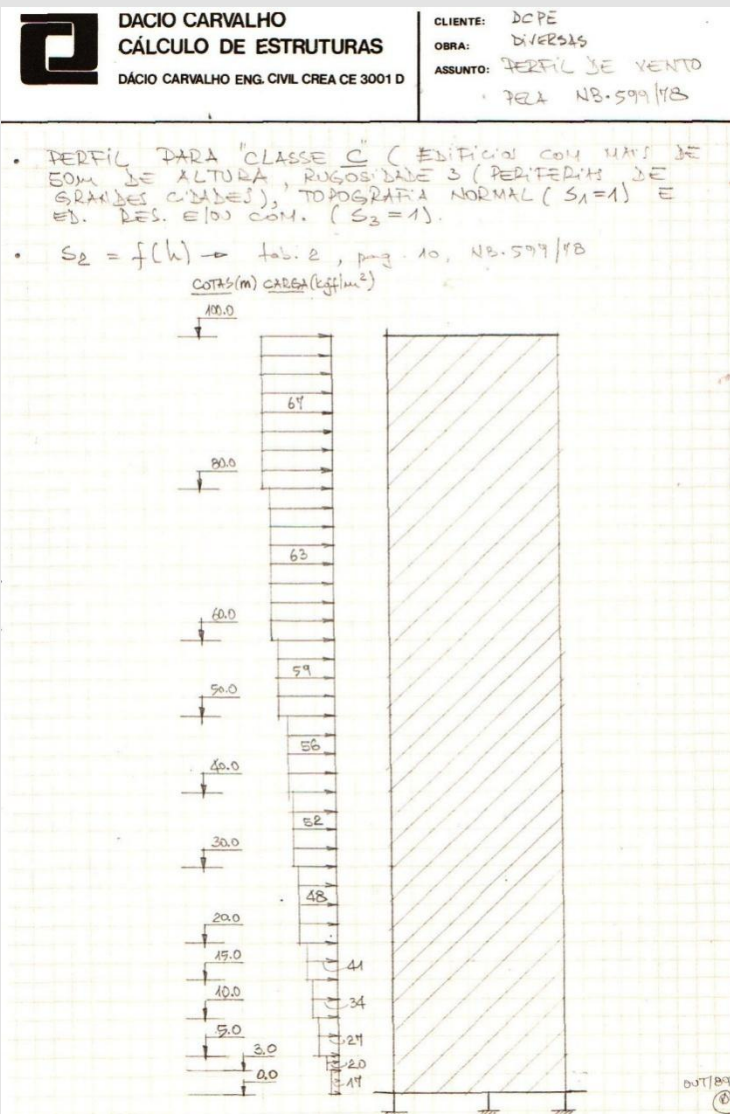 DACIO CARVALHO
CÁLCULO DE ESTRUTURAS
DÁCIO CARVALHO ENG. CIVIL CREA CE 3001 D
CLIENTE: DCPE
OBRA: DIVERSAS
ASSUNTO: PERFIL DE VENTO
PELA NB-599/78
• PERFIL PARA "CLASSE C" (EDIFÍCIOS COM MAIS DE
50m DE ALTURA, RUGOSIDADE 3 (PERIFERIAS DE
GRANDES CIDADES), TOPOGRAFIA NORMAL (S1=1) E
ED. RES. E/OU COM. (S3=1).
• S2 = f(h) → tab. 2, pag. 10, NB-599/78
COTAS(m) CARGA(kgf/m²)
100.0
67
80.0
63
60.0
59
50.0
56
40.0
52
30.0
48
20.0
41
15.0
34
10.0
27
5.0
20
3.0
17
0.0
OUT/89